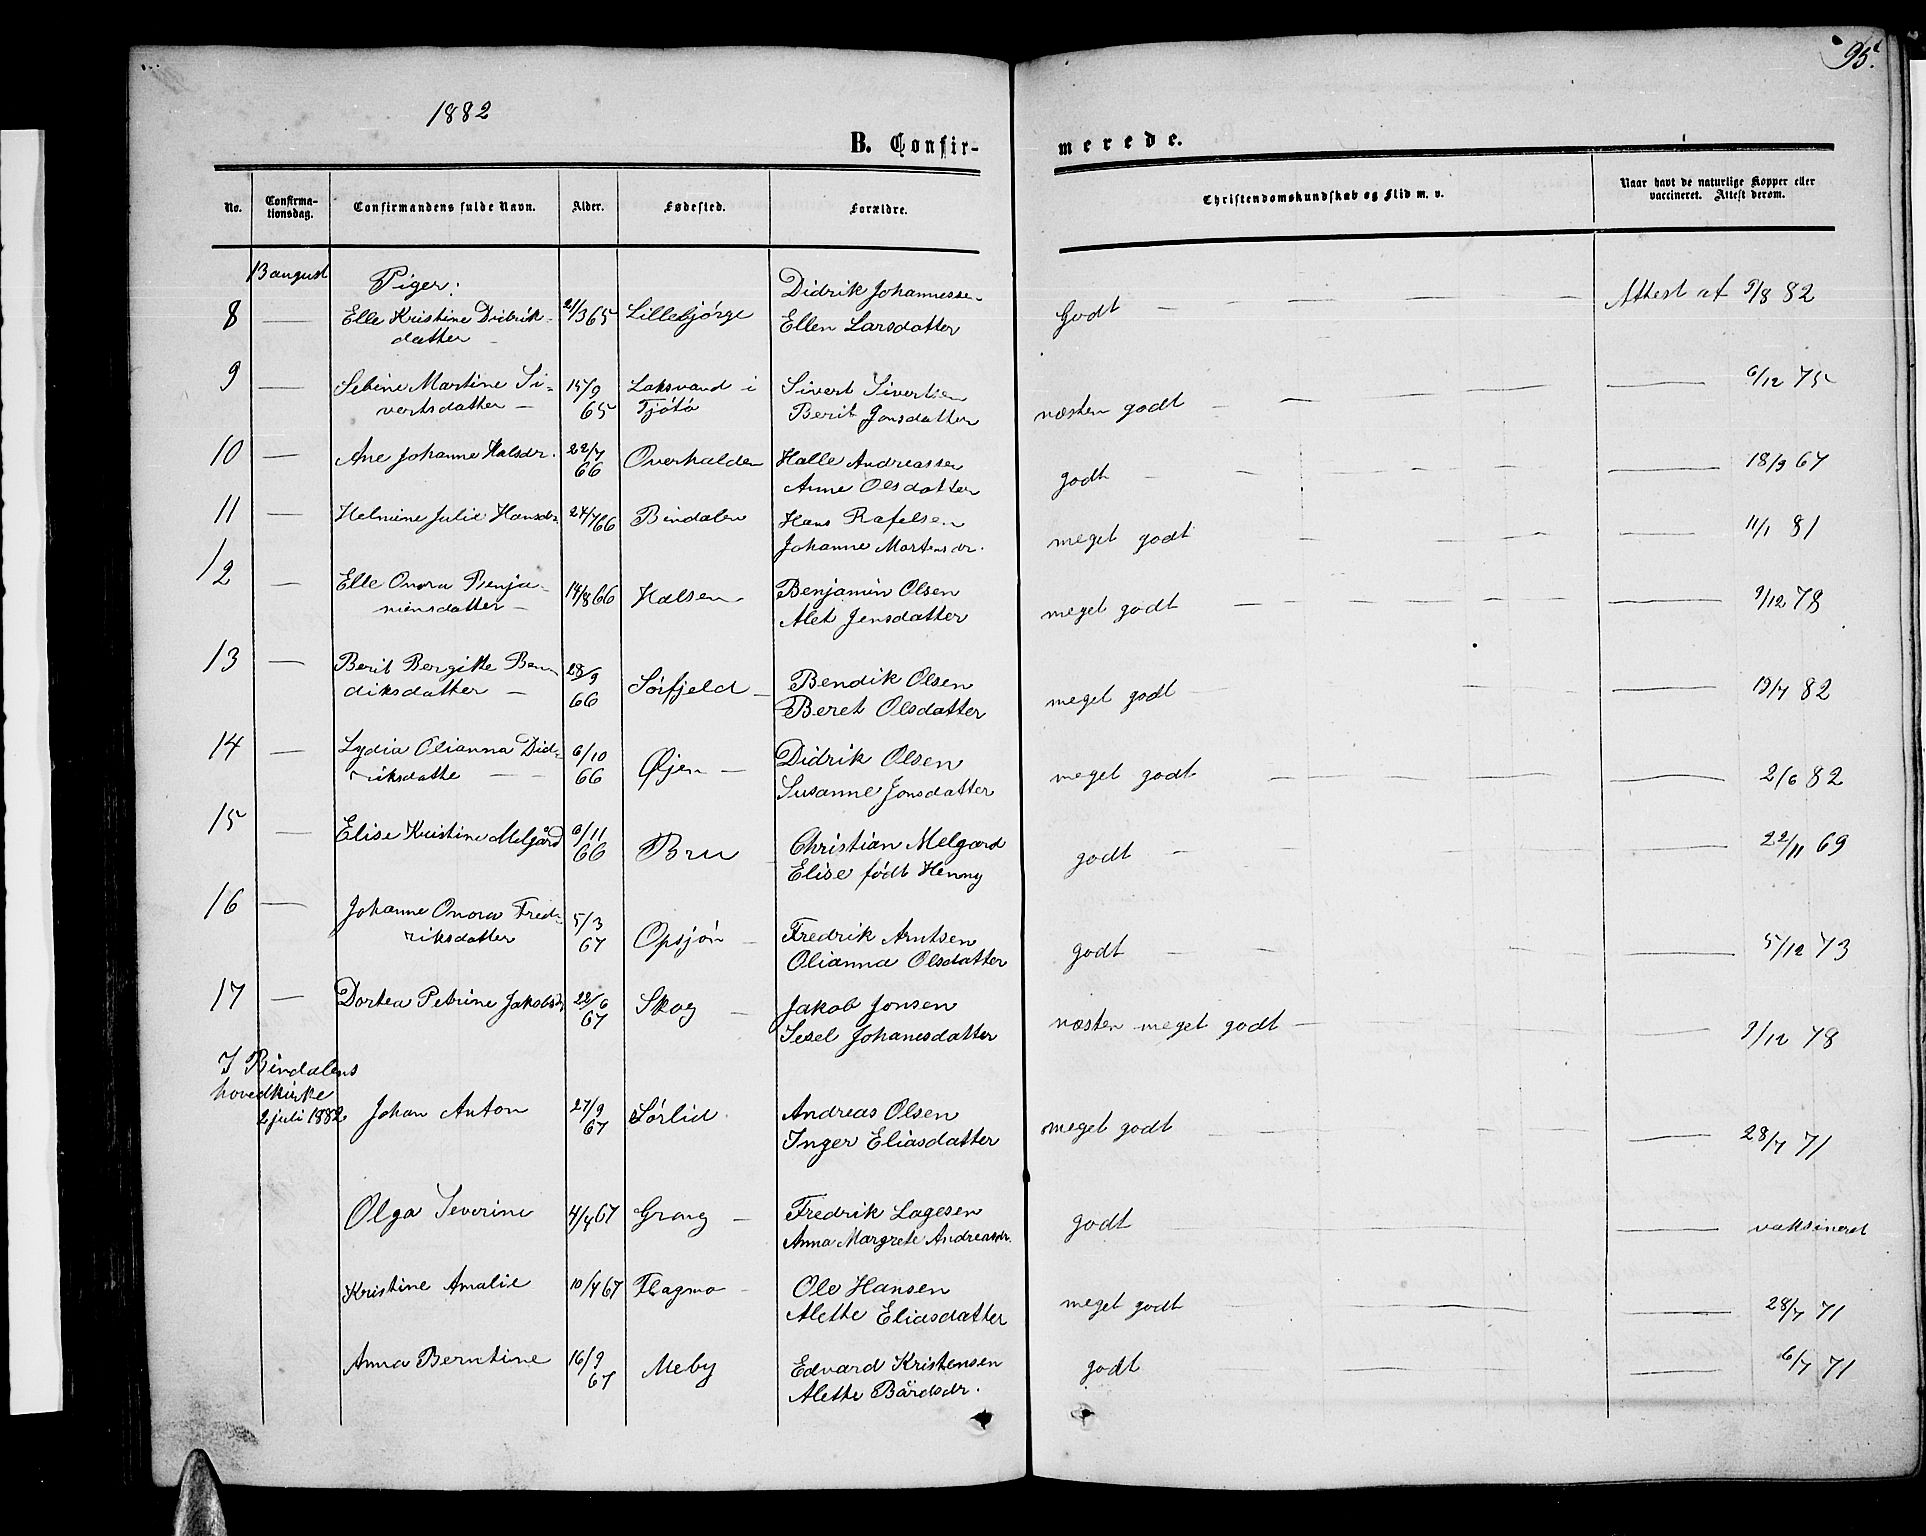 95.
1882
B. Confirmerede.
No. Confirmationsdag. Confirmandens fulde Navn. Alder. Fødested. Forældre. Christendomskundskab og Flid m. v. Naar havt de naturlige Kopper eller vaccineret. Attest derom.
13 august Piger:
8 — Elle Kristine Didrik- 21/3 65 Lillebjørge Didrik Johannessen Godt — Attest af 9/8 82
datter — Ellen Larsdatter
9 — Sebine Martine Si- 14/9 Laksvand i Sivert Sivertsen næsten godt — 6/12 75
vertsdatter — 65 Tjøtø Berit Jonsdatter
10 — Ane Johanne Halsdr. 22/7 Overhalden Halle Andreassen godt — 18/9 67
66 Anne Olsdatter
11 — Helmine Julie Hansdr. 24/7 66 Bindalen Hans Rafelsen meget godt — 11/1 81
Johanne Mortensdr.
12 — Elle Onora Benja- 14/8 66 Halsen Benjamin Olsen meget godt — 9/12 78
minsdatter — Alet Jensdatter
13 — Berit Bergitte Ben- 28/9 Sørfjeld — Bendik Olsen meget godt — 19/7 82
diksdatter — 66 Beret Olsdatter
14 — Lydia Olianna Did- 6/10 Øjen — Didrik Olsen meget godt — 2/6 82
riksdatte — 66 Susanne Jonsdatter
15 — Elise Kristine Melgård 6/11 Bru — Christian Melgard godt — 22/11 69
66 Elise født Henny
16 — Johanne Onora Fred- 5/3 Opsjøn — Fredrik Arntsen godt — 5/12 73
riksdatter 67 Olianna Olsdatter
17 — Dortea Petrine Jakobsdr 22/6 Skog — Jakob Jonsen næsten meget godt — 9/12 78
67 Sesel Johanesdatter
I Bindalens
hovedkirke
2 juli 1882 Johan Anton 27/9 Sørlid Andreas Olsen meget godt — 28/7 71
67 Inger Eliasdatter
Olga Severine 4/4 67 Grang — Fredrik Lagesen godt — vaksineret
Anna Margrete Andreasdr.
Kristine Amalie 10/4 67 Flagmo — Ole Hansen meget godt — 28/7 71
Alette Eliasdatter
Anna Berntine 16/9 Meby Edvard Kristensen godt — 6/7 71
67 Alette Bårdsdr.